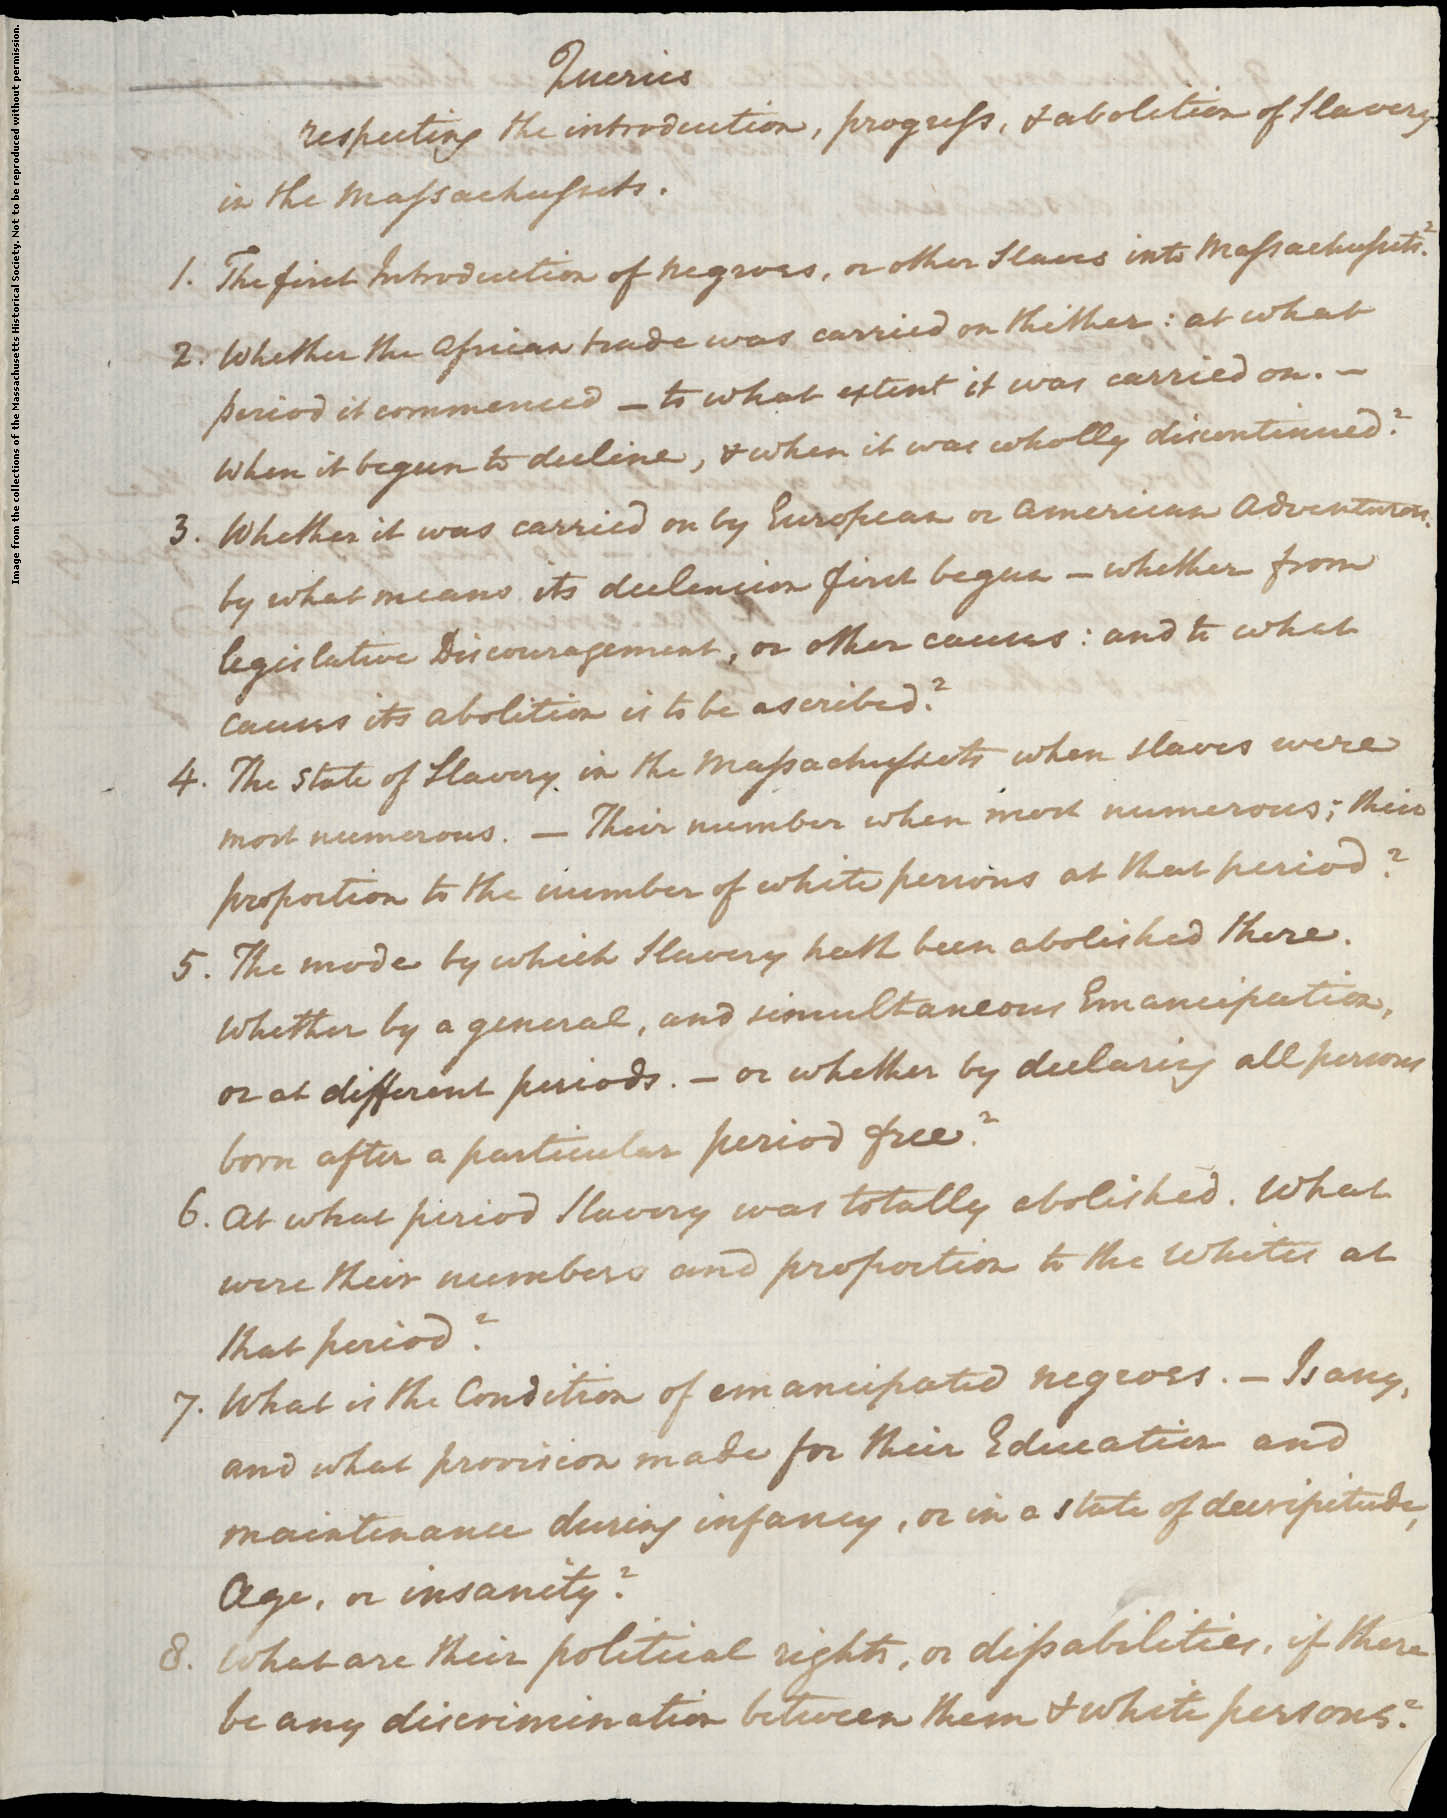 Image from the collections of the Massachusetts Historical Society. Not to be reproduced without permission.
Queries
respecting the introduction, progreſs, & abolition of Slavery
in the Maſsachuſsets.
1. The first Introduction of negroes, or other Slaves into Maſsachuſsets?
2. Whether the African trade was carried on thither: at what
period it commenced — to what extent it was carried on. —
when it begun to decline, & when it was wholly discontinued?
3. Whether it was carried on by European or American Adventurers.
by what means its declension first begun — whether from
legislative Discouragement, or other causes: and to what
causes its abolition is to be ascribed?
4. The State of Slavery in the Maſsachuſsets when slaves were
most numerous. — Their number when most numerous; their
proportion to the number of white persons at that period?
5. The mode by which Slavery hath been abolished there.
Whether by a general, and simultaneous Emancipation,
or at different periods. — or whether by declaring all persons
born after a particular period free?
6. At what period Slavery was totally abolished. What
were their numbers and proportion to the Whites at
that period?
7. What is the Condition of emancipated negroes. — Is any,
and what provision made for their Education and
maintenance during infancy, or in a state of decripitude,
Age, or insanity?
8. What are their political rights, or diſsabilities, if there
be any discrimination between them & white persons?